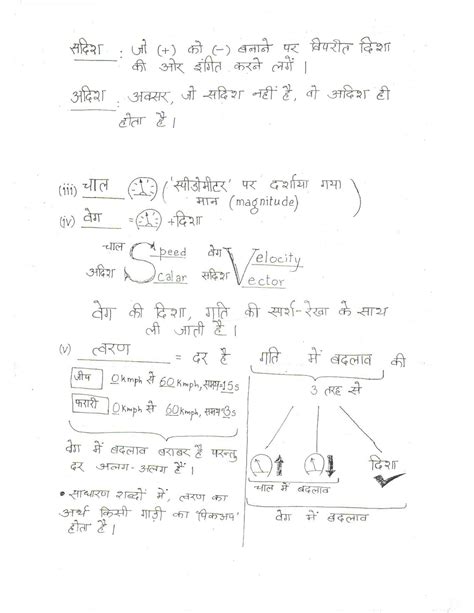 सदिश : जो (+) को (-) बनाने पर विपरीत दिशा
की ओर इंगित करने लगें।
अदिश : अक्सर, जो सदिश नहीं है, वो अदिश ही
होता है।
(iii) चाल ('स्पीडोमीटर' पर दर्शाया गया
मान (magnitude)
(iv) वेग = +दिशा
चाल Speed वेग Velocity
अदिश Scalar सदिश Vector
वेग की दिशा, गति की स्पर्श-रेखा के साथ
ली जाती है।
(v) त्वरण = दर है गति में बदलाव की
जीप 0 Kmph से 60 Kmph, समय=15s
3 तरह से
फरारी 0 Kmph से 60 Kmph, समय=3s
वेग में बदलाव बराबर है परन्तु
दर अलग-अलग हैं।
दिशा
चाल में बदलाव
• साधारण शब्दों में, त्वरण का
अर्थ किसी गाड़ी का 'पिकअप'
होता है।
वेग में बदलाव